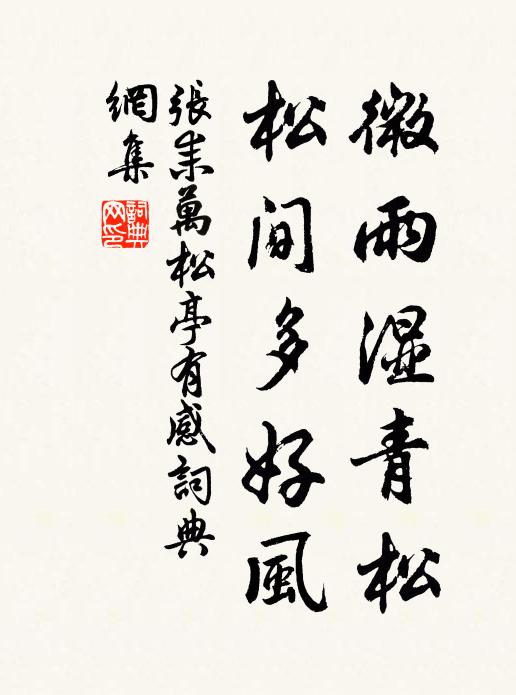 微雨湿青松
松间多好風
張耒萬松亭有感詞典
網集
詞典
网印